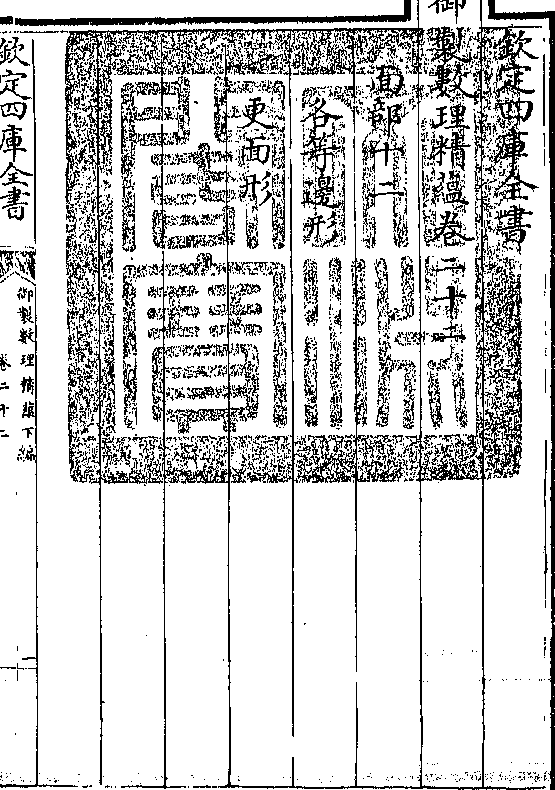 欽定四庫全書
御製數理精蘊卷二十二
面部十二
各等邊形
更面形
欽定四庫全書
御製數理精蘊下編
卷二十二
一